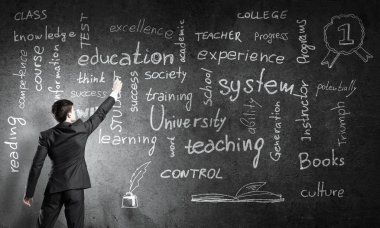 CLASS
TEST
excellence
academic
COLLEGE
culture
Programs
1
knowledge
TEACHER
Progress
education
experience
competence
course
information
think
STUDENT
society
school
system
potentially
success
success
training
ability
Instructor
Triumph
reading
University
learning
work
teaching
Generation
Books
CONTROL
culture